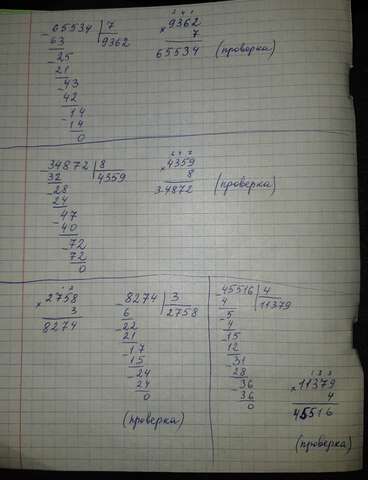 65534 | 7
63 9362
25
21
43
42
14
14
0
2 4 1
× 9362
7
65534 (проверка)
34872 | 8
32 4359
28
24
47
40
72
72
0
2 4 7
× 4359
8
34872 (проверка)
× 2758
3
8274
8274 | 3
6 2758
22
21
17
15
24
24
0
(проверка)
45516 | 4
4 11379
5
4
15
12
31
28
36
36
0
1 3 3
× 11379
4
45516
(проверка)